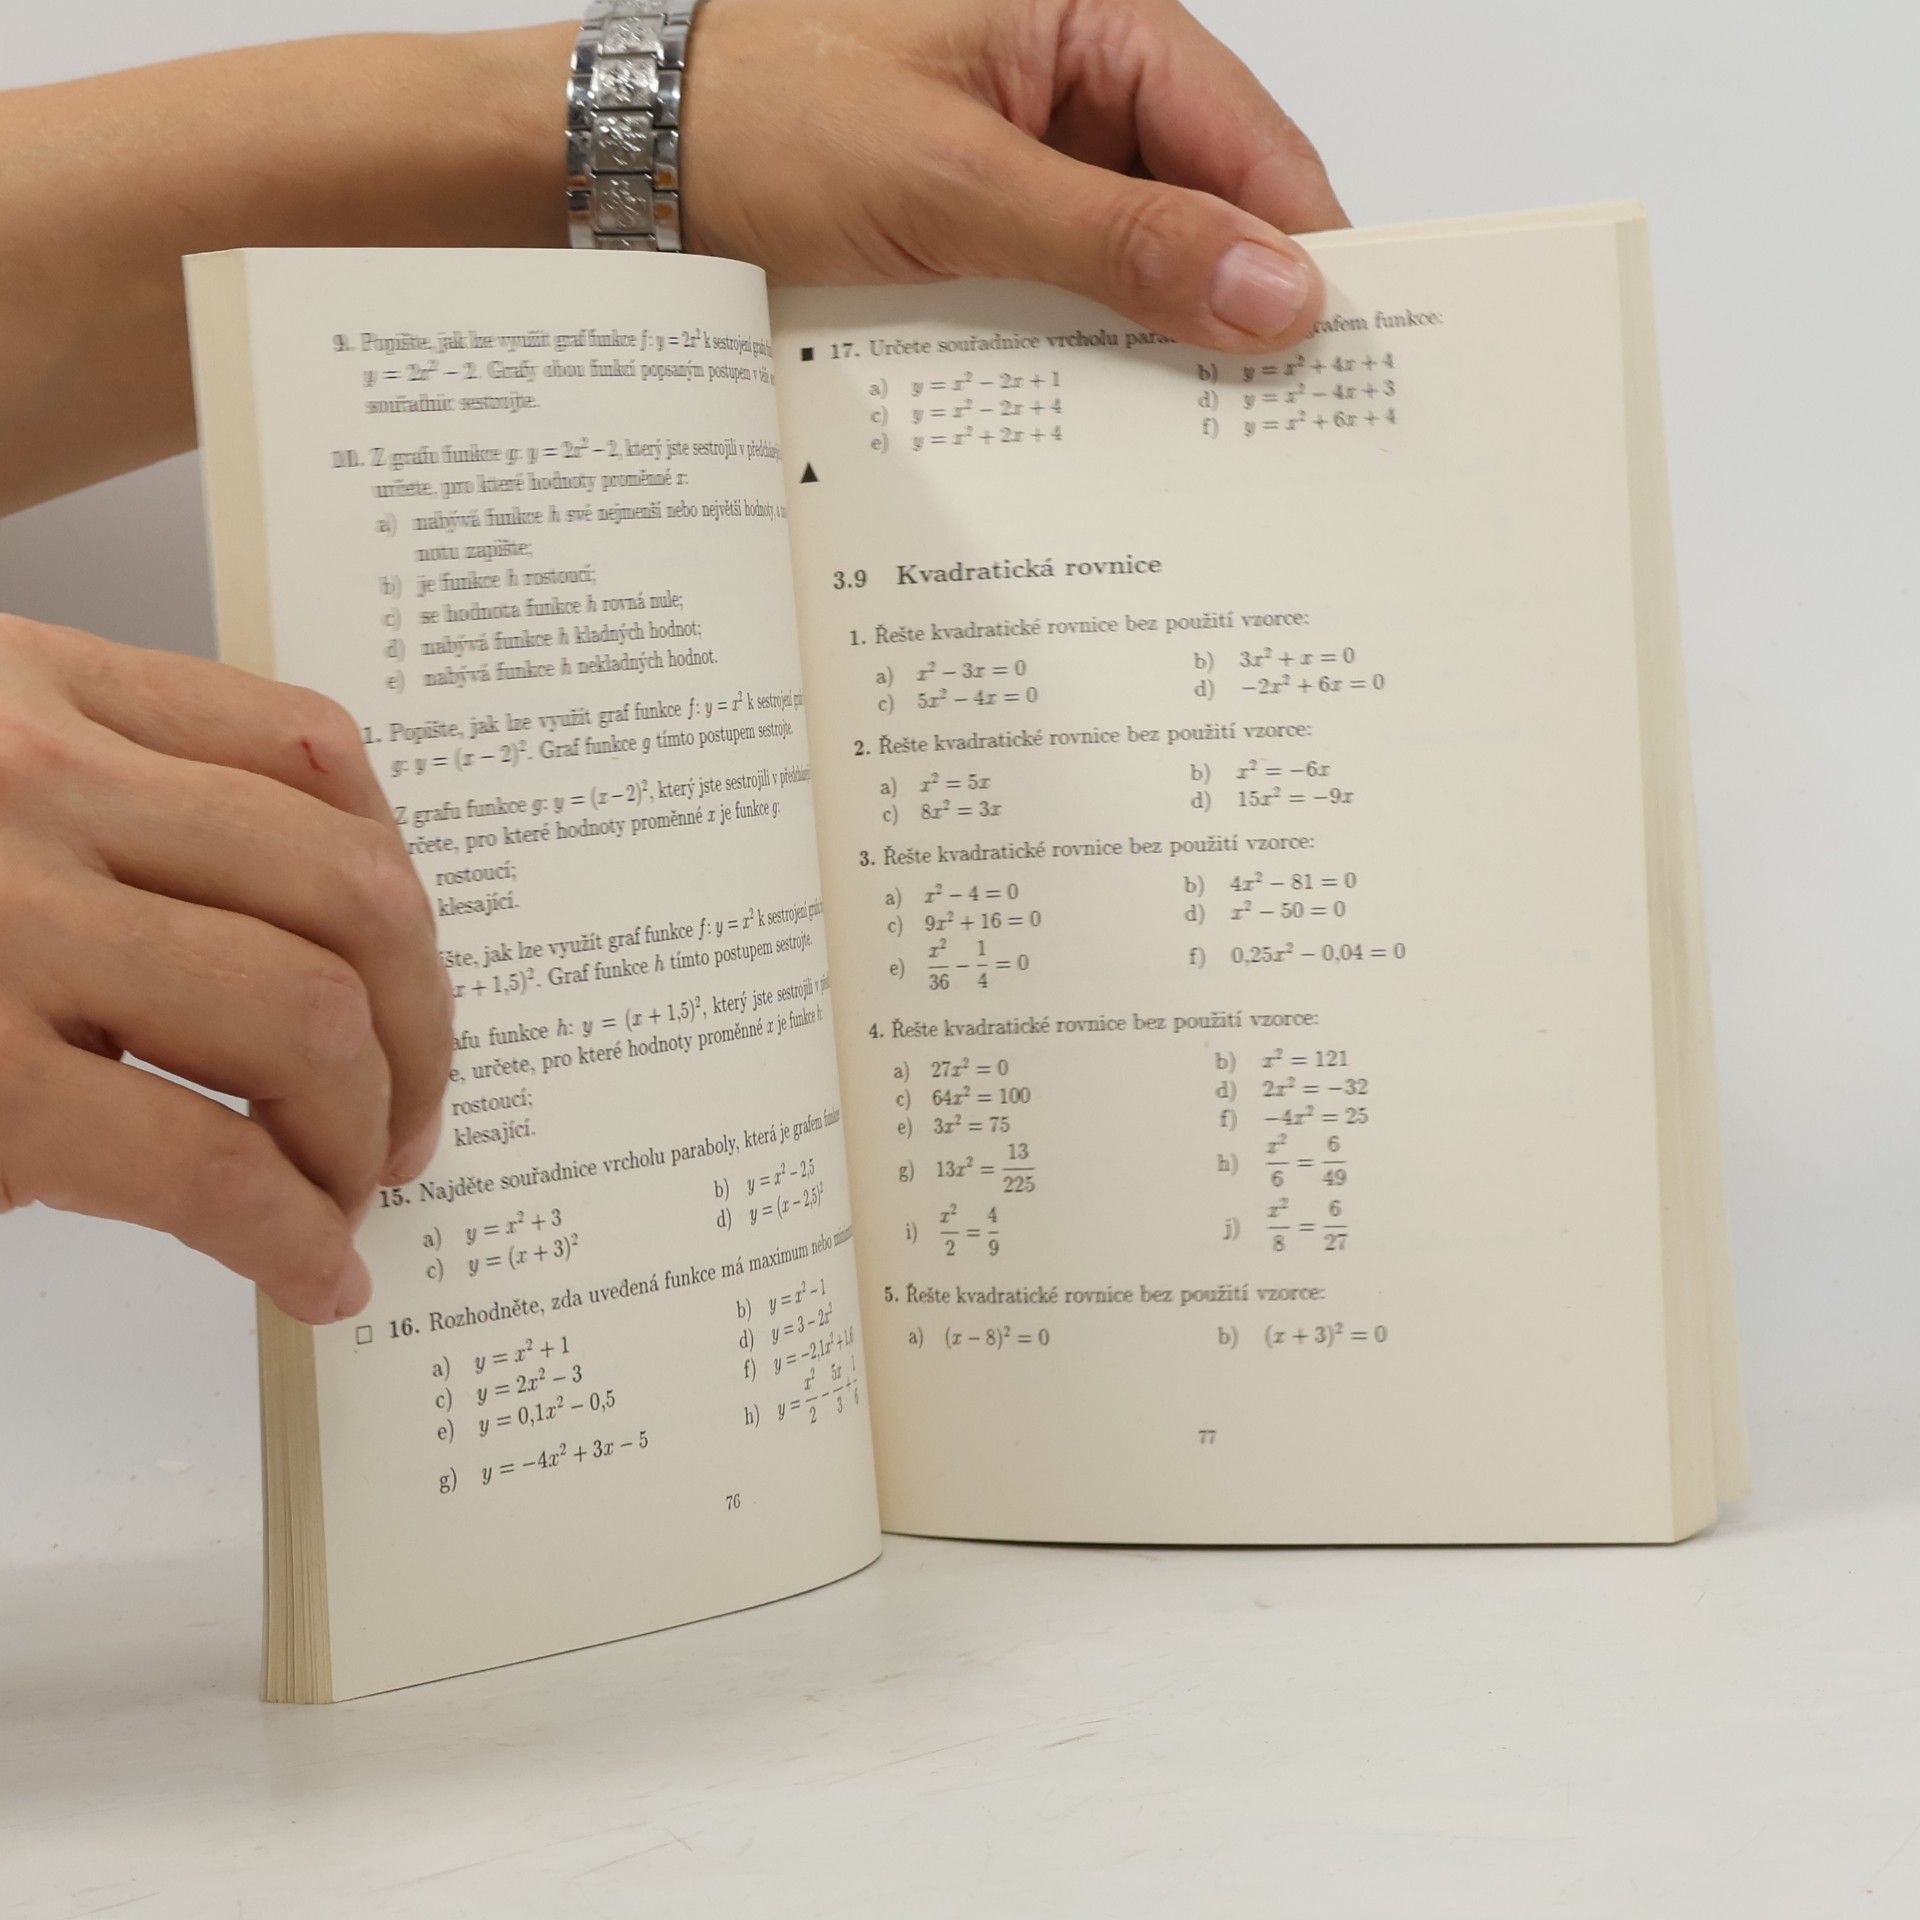 9. Popište, jak lze využít graf funkce f: y = 2x² k sestrojení
y = 2x² − 2. Grafy obou funkcí popsaným postupem v téže
souřadnic sestrojte.
10. Z grafu funkce g: y = 2x² − 2, který jste sestrojili v
určete, pro které hodnoty proměnné x:
a) nabývá funkce h své nejmenší nebo největší hodnoty, a
notu zapište;
b) je funkce h rostoucí;
c) se hodnota funkce h rovná nule;
d) nabývá funkce h kladných hodnot;
e) nabývá funkce h nekladných hodnot.
1. Popište, jak lze využít graf funkce f: y = x² k sestrojení
g: y = (x − 2)². Graf funkce g tímto postupem sestrojte.
Z grafu funkce g: y = (x − 2)², který jste sestrojili v
rčete, pro které hodnoty proměnné x je funkce g:
rostoucí;
klesající.
ište, jak lze využít graf funkce f: y = x² k sestrojení
x + 1,5)². Graf funkce h tímto postupem sestrojte.
afu funkce h: y = (x + 1,5)², který jste sestrojili v
e, určete, pro které hodnoty proměnné x je funkce h:
rostoucí;
klesající.
15. Najděte souřadnice vrcholu paraboly, která je grafem funkce
a) y = x² + 3 b) y = x² − 2,5
c) y = (x + 3)² d) y = (x − 2,5)²
□ 16. Rozhodněte, zda uvedená funkce má maximum nebo
a) y = x² + 1 b) y = x² − 1
c) y = 2x² − 3 d) y = 3 − 2x²
e) y = 0,1x² − 0,5 f) y = −2,1x² + 1,6
g) y = −4x² + 3x − 5 h) y = x²/2 − 5x/3 + 1/6
76
■ 17. Určete souřadnice vrcholu grafem funkce:
a) y = x² − 2x + 1 b) y = x² + 4x + 4
c) y = x² − 2x + 4 d) y = x² − 4x + 3
e) y = x² + 2x + 4 f) y = x² + 6x + 4
▲
3.9 Kvadratická rovnice
1. Řešte kvadratické rovnice bez použití vzorce:
a) x² − 3x = 0 b) 3x² + x = 0
c) 5x² − 4x = 0 d) −2x² + 6x = 0
2. Řešte kvadratické rovnice bez použití vzorce:
a) x² = 5x b) x² = −6x
c) 8x² = 3x d) 15x² = −9x
3. Řešte kvadratické rovnice bez použití vzorce:
a) x² − 4 = 0 b) 4x² − 81 = 0
c) 9x² + 16 = 0 d) x² − 50 = 0
e) x²/36 − 1/4 = 0 f) 0,25x² − 0,04 = 0
4. Řešte kvadratické rovnice bez použití vzorce:
a) 27x² = 0 b) x² = 121
c) 64x² = 100 d) 2x² = −32
e) 3x² = 75 f) −4x² = 25
g) 13x² = 13/225 h) x²/6 = 6/49
i) x²/2 = 4/9 j) x²/8 = 6/27
5. Řešte kvadratické rovnice bez použití vzorce:
a) (x − 8)² = 0 b) (x + 3)² = 0
77